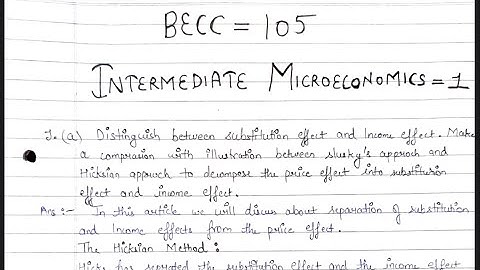 BECC = 105
INTERMEDIATE MICROECONOMICS = 1
1. (a) Distinguish between substitution effect and Income effect. Make
a comprasion with illustration between slusky's approch and
Hicksian approch to decompose the price effect into substitution
effect and income effect.
Ans :- In this article we will discus about separation of substitution
and Income effects from the price effect.
The Hicksian Method :
Hicks has seprated the substitution effect and the income effect